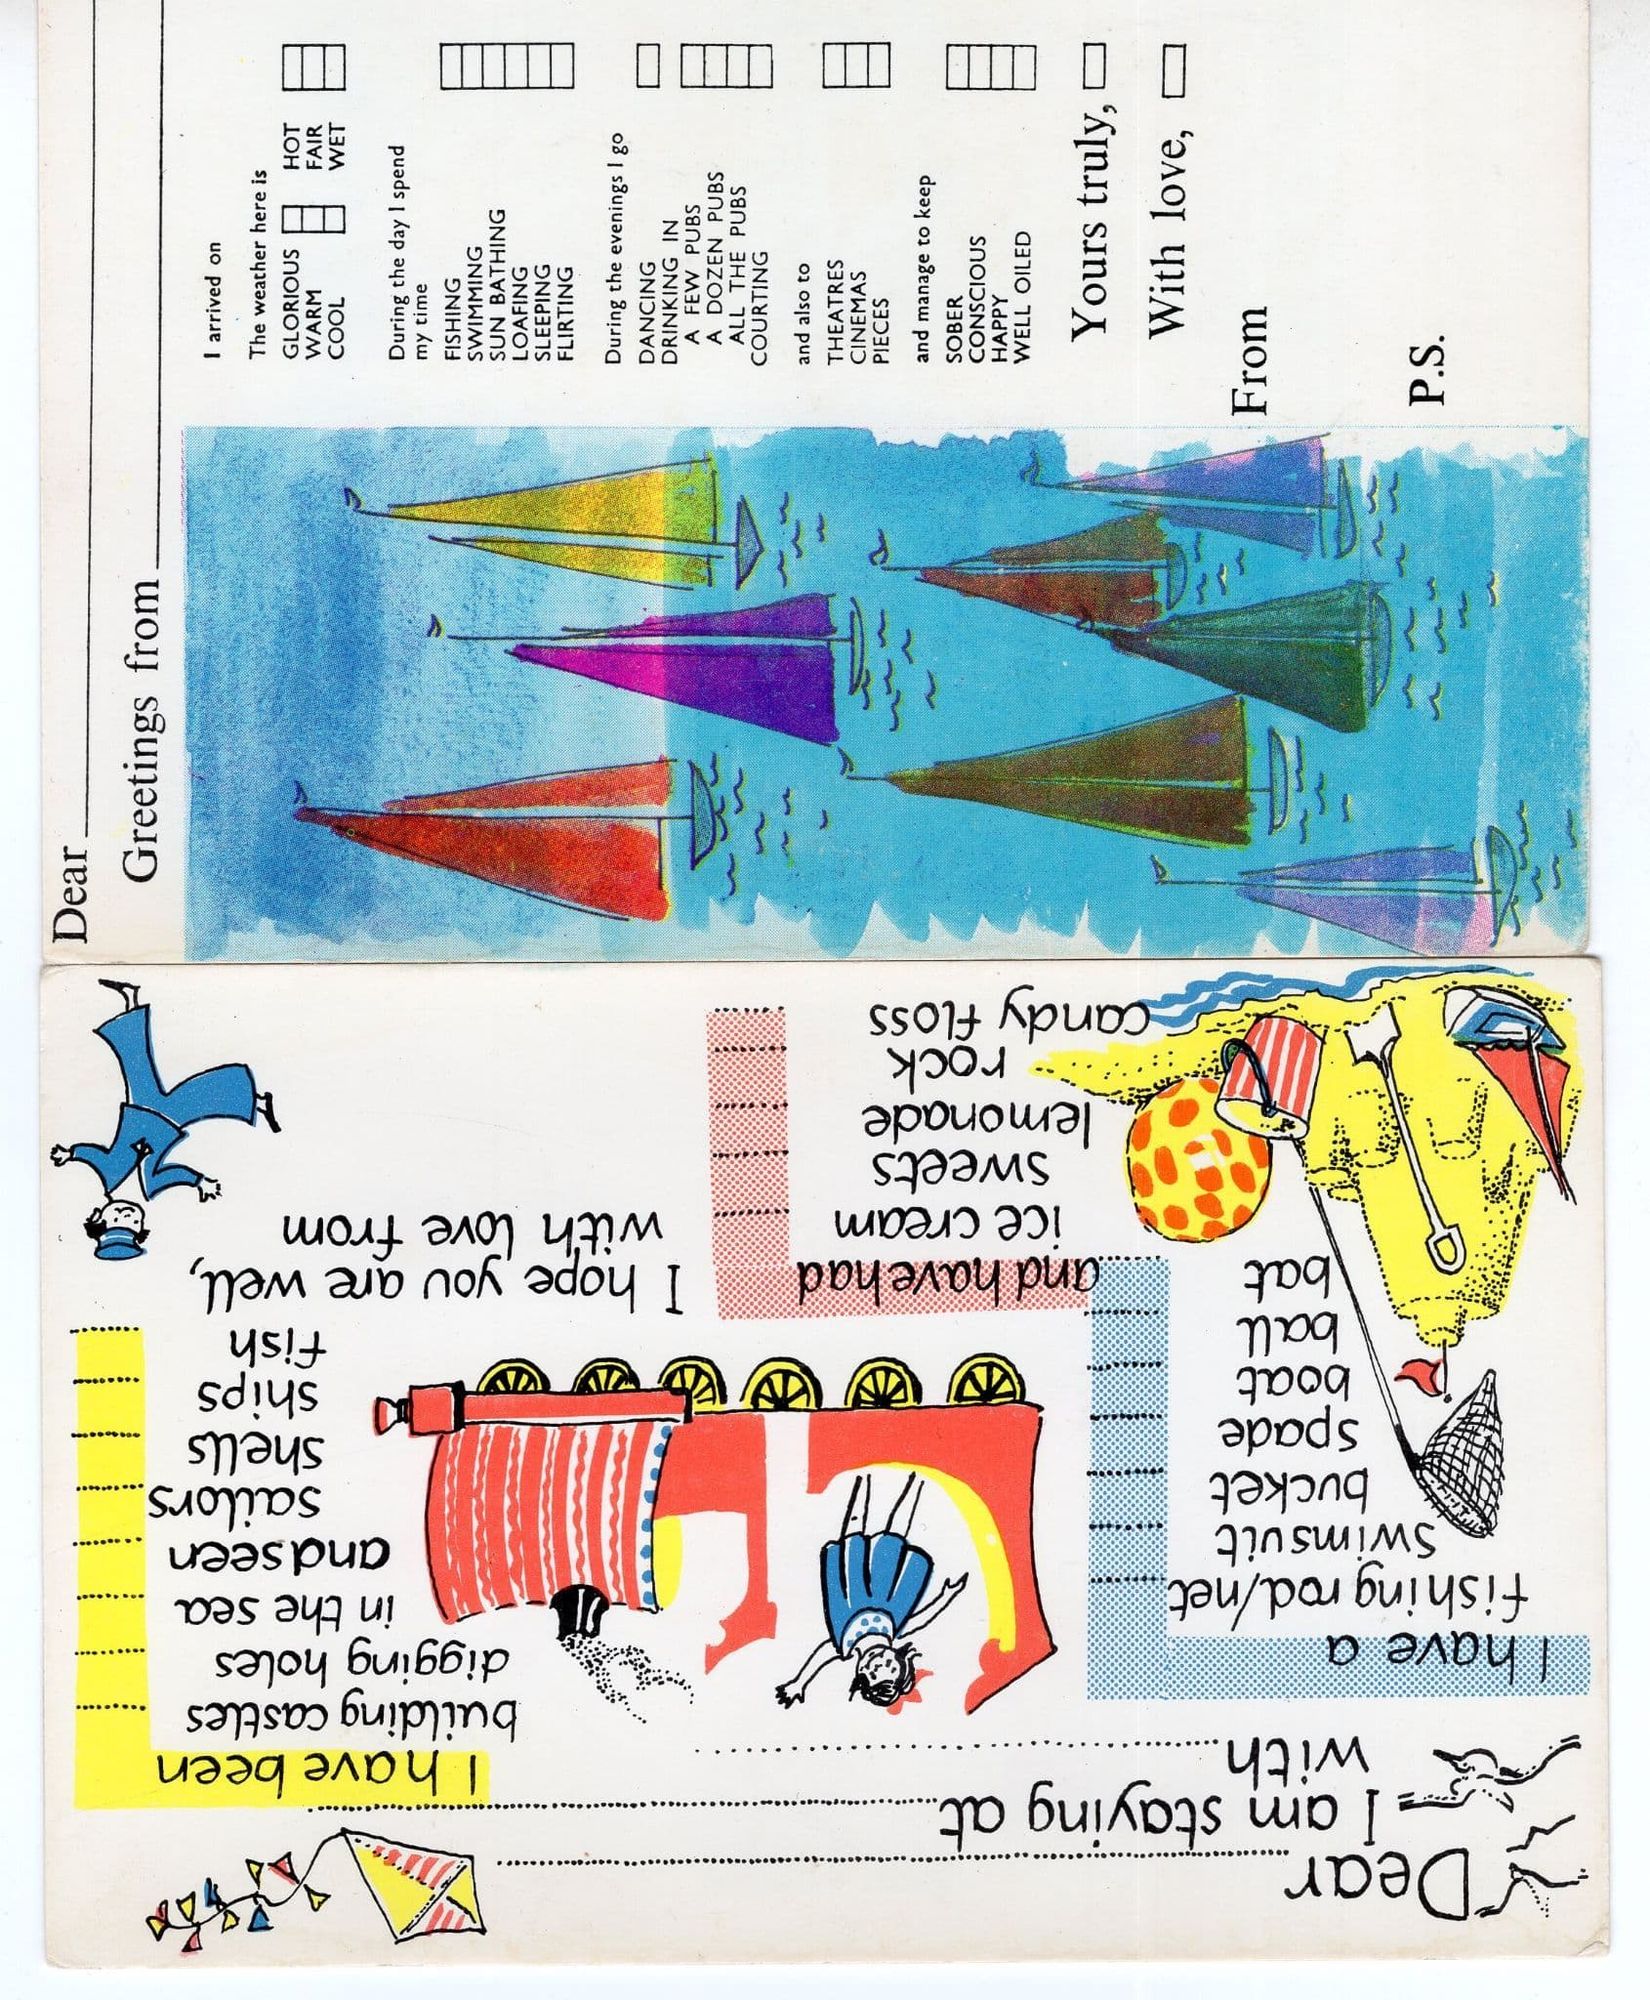 Dear
Greetings from
I arrived on
The weather here is
GLORIOUS HOT
WARM FAIR
COOL WET
During the day I spend
my time
FISHING
SWIMMING
SUN BATHING
LOAFING
SLEEPING
FLIRTING
During the evenings I go
DANCING
DRINKING IN
A FEW PUBS
A DOZEN PUBS
ALL THE PUBS
COURTING
and also to
THEATRES
CINEMAS
PIECES
and manage to keep
SOBER
CONSCIOUS
HAPPY
WELL OILED
Yours truly,
With love,
From
P.S.
Dear
I am staying at
with
I have a
fishing rod/net
swimsuit
bucket
spade
boat
ball
bat
and have had
ice cream
sweets
lemonade
rock
candy floss
I have been
building castles
digging holes
in the sea
and seen
sailors
shells
ships
fish
I hope you are well,
with love from